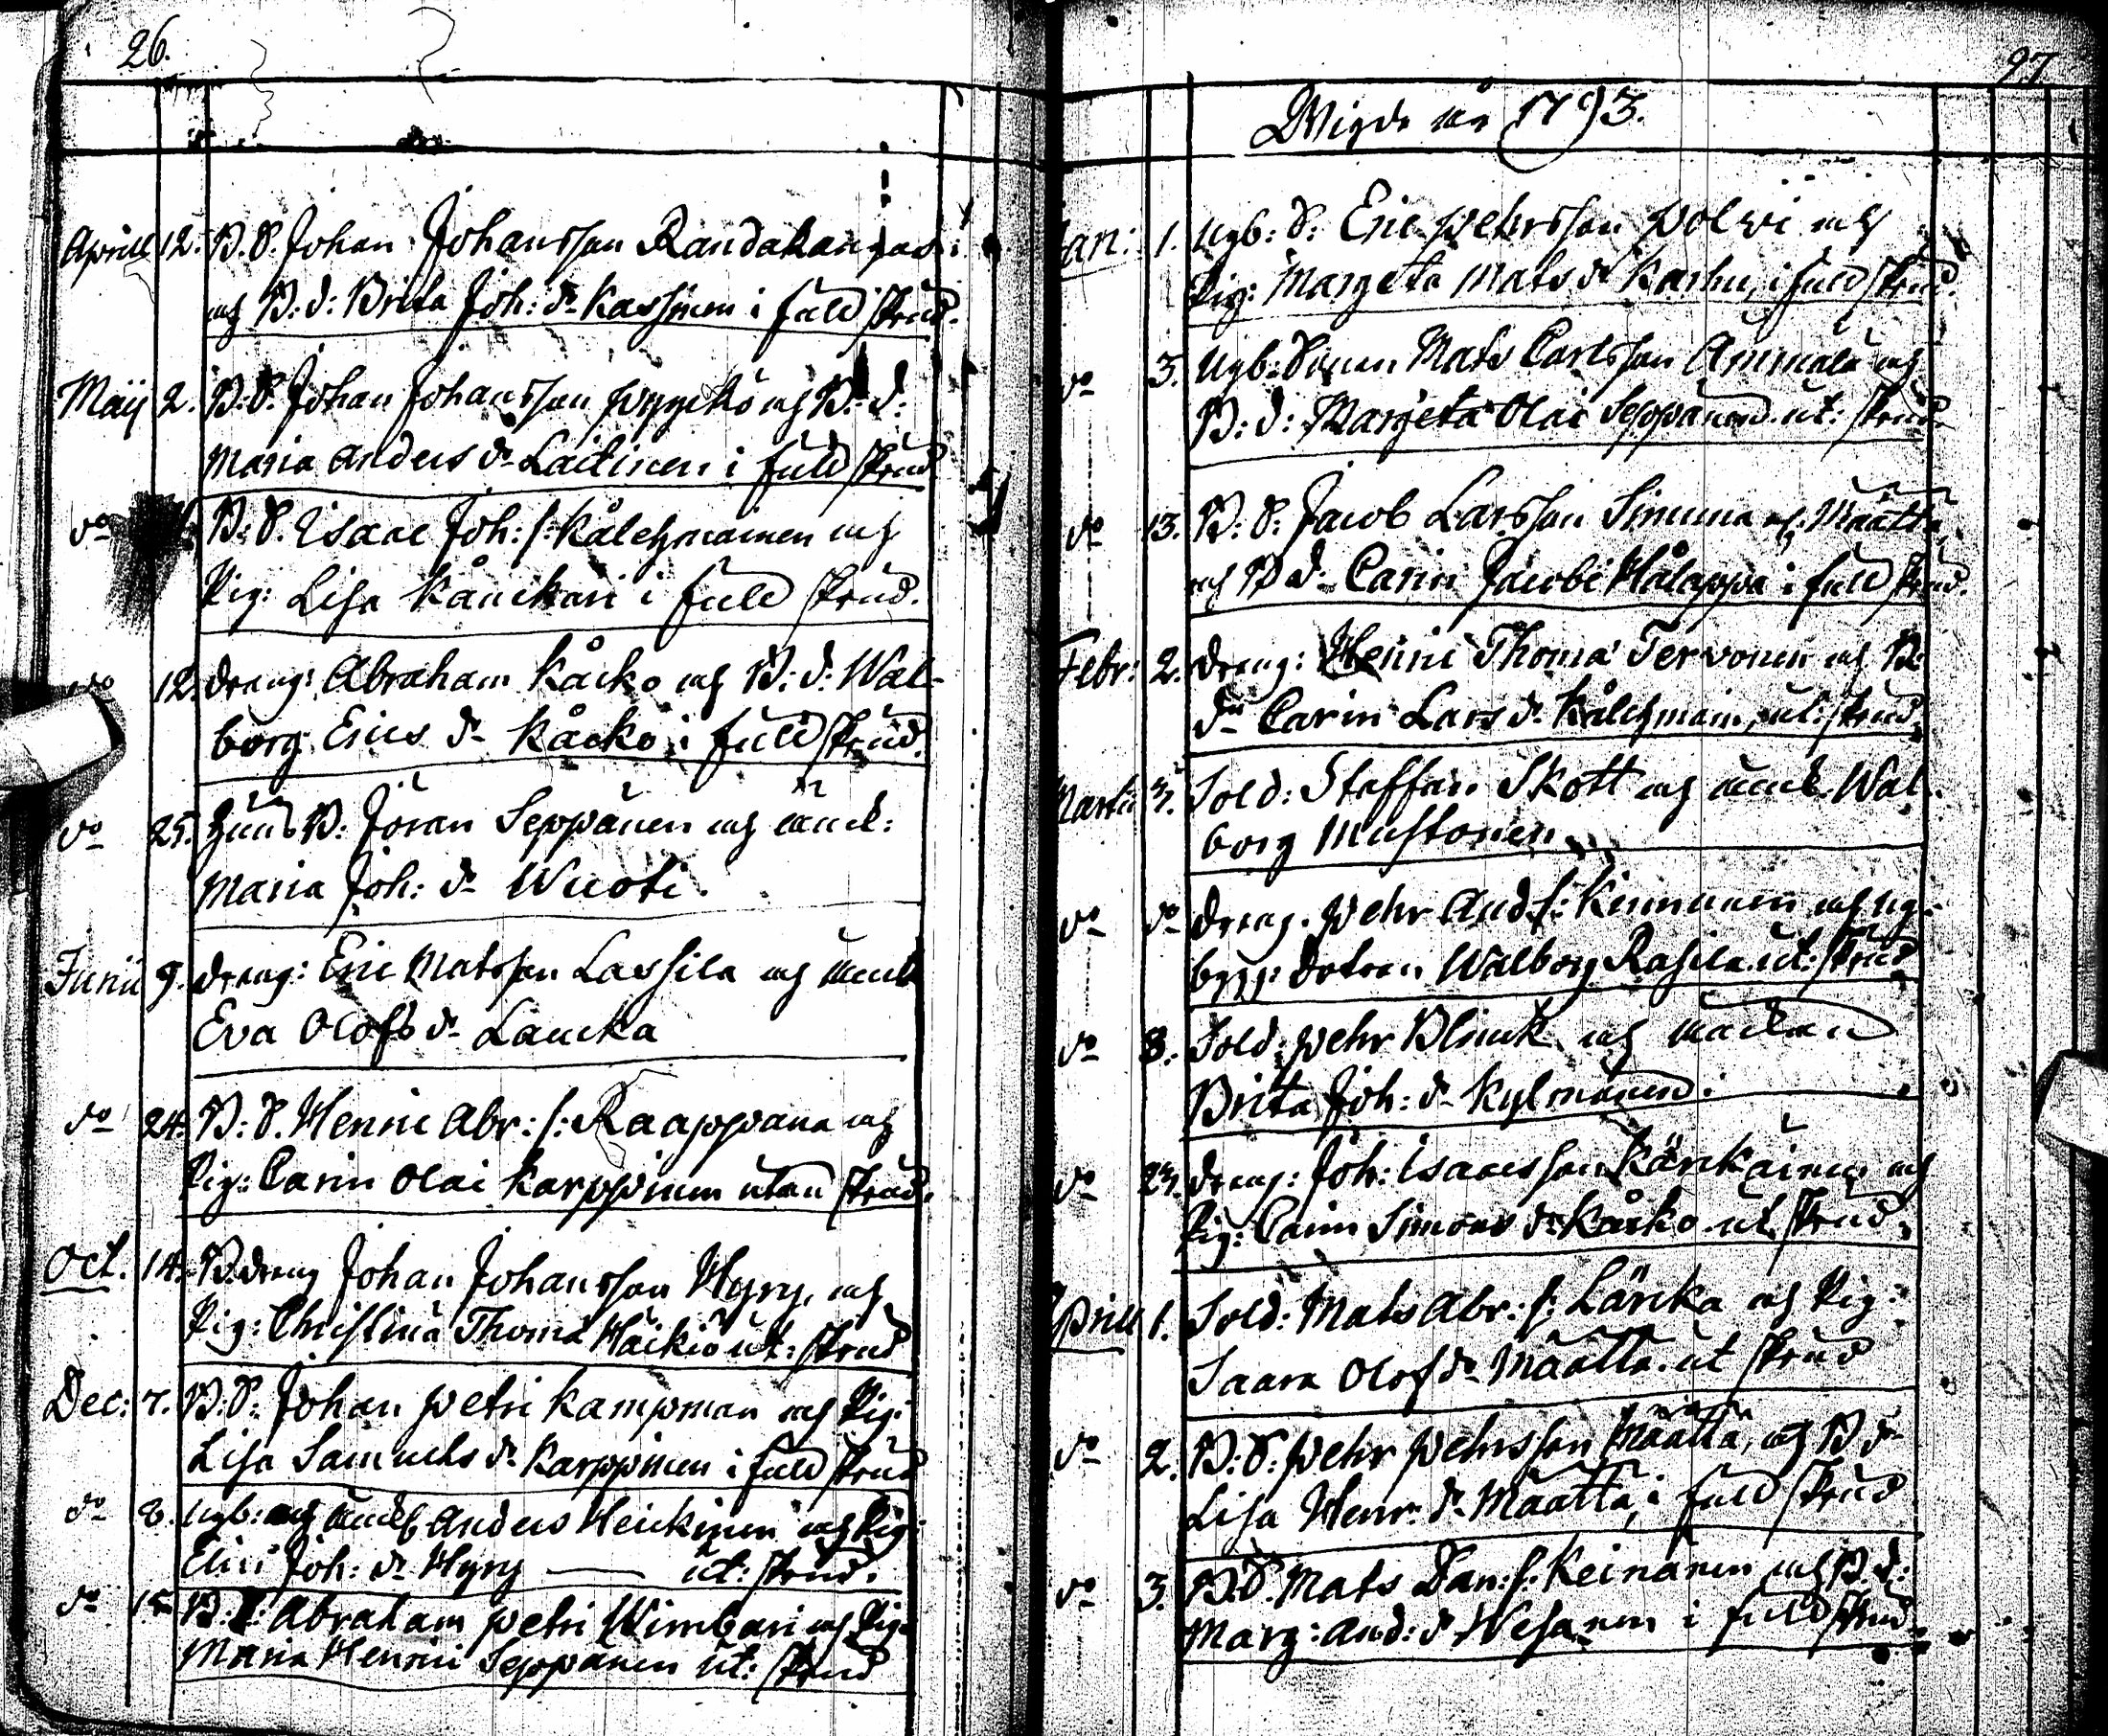 26.
Aprill 12. B. S. Johan Johansson Randakangas
och B: d: Brita Joh: dr Kassinen i full skrud.
Maij 2. B: S. Johan Johansson Pyyckö och B: d:
Maria Anders dr Laitinen i full skrud
do B: S. Isaac Joh: s: Kålehmainen och
Pig: Lisa Kånikari i full skrud.
do 12. dreng: Abraham Kåcko och B: d: Wal-
borg Erics dr Kåcko i full skrud.
do 25. Husb: Jöran Seppänen och enck:
Maria Joh: dr Wuoti.
Junii 9. dreng: Eric Matsson Lassila och enck
Eva Olofs dr Laucka
do 24. B: S. Henric Abr: s: Raappana och
Pig: Carin Olai Karppinen utan skrud.
Oct. 14. B. dreng Johan Johansson Hyry, och
Pig: Christina Thoma Häikiö ut: skrud
Dec: 7. B: S: Johan Petri Kampman och Pig:
Lisa Samuels dr Karppinen i full skrud
do 8. Nyb: och enckl Anders Heickinen och Pig:
Elin Joh: dr Hyry — ut: skrud.
do 15. B: Abraham Petri Wimbari och Pig:
Maria Henrici Seppänen ut: skrud
27
Wigde År 1793.
Jan: 1. Nyb: S: Eric Pehrsson Polvi och
Pig: Margeta Mats dr Karhu, i full skrud.
do 3. Nyb: Sonen Mats Carlsson Ämmälä och
B: d: Margeta Olai Seppänen ut: skrud.
do 13. B: S: Jacob Larsson Simuna l. Määttä
och B d. Carin Jacobi Hålappa i full skrud.
Febr: 2. dreng: Henric Thoma Tervonen och B:
dr Carin Lars dr Kålehmain, ut: skrud.
Martii 3. Sold: Staffan Skott och enck. Wal-
borg Mustonen
do do dreng. Pehr And: s: Kinnunen och ny-
bygg: dotren Walborg Rasila ut: skrud
do 8. Sold: Pehr Blinck och enckan
Brita Joh: dr Kylmänen.
do 23. dreng: Joh: Isacsson Kärikäinen och
Pig: Carin Simons dr Kåcko ut skrud.
Aprill 1. Sold: Mats Abr: s: Lärcka och Pig:
Saara Olofs dr Määttä ut skrud
do 2. B: S: Pehr Pehrsson Määttä, och B dr
Lisa Henr: dr Määttä, i full skrud
do 3. B. S. Mats Dan: s: Keinänen och B. d:
Marg: And: dr Wesanen i full skrud